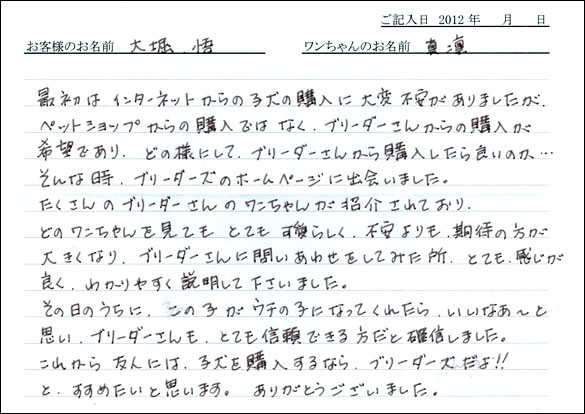 ご記入日 2012 年 月 日
お客様のお名前 大堀 悟 ワンちゃんのお名前 真凛
最初は インターネットからの子犬の購入に大変不安がありましたが、
ペットショップからの購入ではなく、ブリーダーさんからの購入が
希望であり、どの様にして、ブリーダーさんから購入したら良いのか…
そんな時、ブリーダーズのホームページに出会いました。
たくさんのブリーダーさんのワンちゃんが紹介されており、
どのワンちゃんを見ても とても可愛らしく、不安よりも、期待の方が
大きくなり、ブリーダーさんに問いあわせをしてみた所、とても、感じが
良く、わかりやすく説明して下さいました。
その日のうちに、この子がウチの子になってくれたら、いいなぁ〜と
思い、ブリーダーさんも、とても信頼できる方だと確信しました。
これから友人には、子犬を購入するなら、ブリーダーズだよ!!
と、すすめたいと思います。 ありがとうございました。